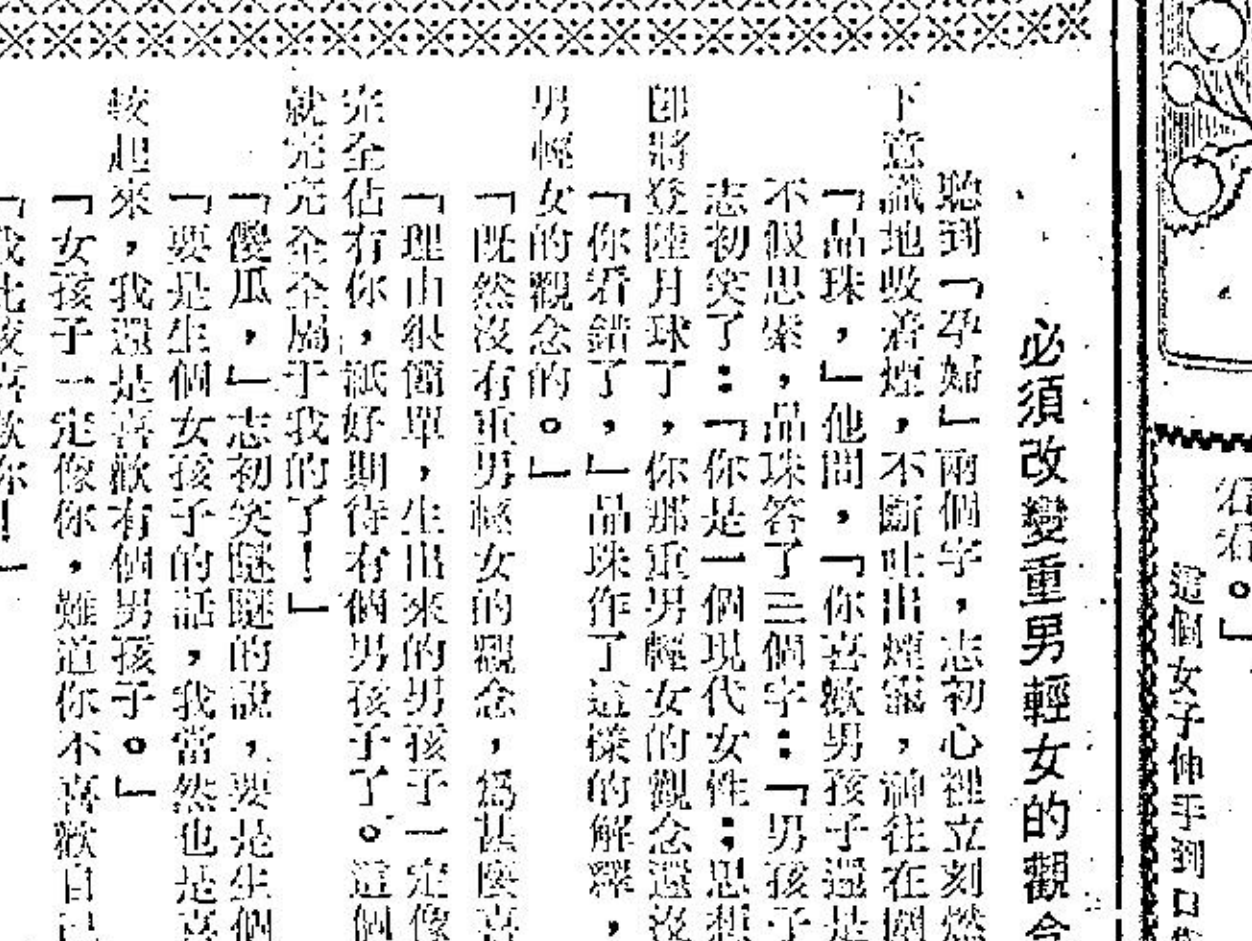 看看。」
這個女子伸手到口
必須改變重男輕女的觀念
聽到「孕婦」兩個字,志初心裡立刻燃
下意識地吸着煙,不斷吐出煙霧,神往在
「品珠,」他問,「你喜歡男孩子還是
不假思索,品珠答了三個字:「男孩子
志初笑了:「你是一個現代女性;思想
即將登陸月球了,你那重男輕女的觀念還沒
「你看錯了,」品珠作了這樣的解釋,
男輕女的觀念的。」
「既然沒有重男輕女的觀念,爲甚麼喜
「理由很簡單,生出來的男孩子一定像
完全佔有你,祇好期待有個男孩子了。這個
就完完全全屬于我的了!」
「傻瓜,」志初笑瞇瞇的說,要是生個
「要是生個女孩子的話,我當然也是喜
較起來,我還是喜歡有個男孩子。」
「女孩子一定像你,難道你不喜歡自己
「我比較喜歡你!」